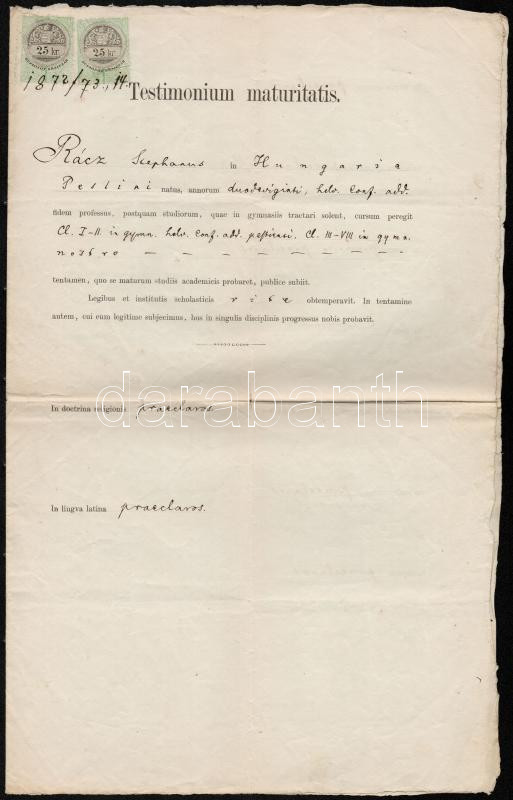 25 kr. 25 kr.
1872/73., 14.
Testimonium maturitatis.
Rácz Stephanus in Hungaria
Pestini natus, annorum duodeviginti, helv. conf. add.
fidem professus, postquam studiorum, quae in gymnasiis tractari solent, cursum peregit
Cl. I-II. in gymn. helv. conf. add. pestiensi. Cl. III-VIII in gymn.
nostro
tentamen, quo se maturum studiis academicis probaret, publice subiit.
Legibus et institutis scholasticis rite obtemperavit. In tentamine
autem, cui eum legitime subjecimus, hos in singulis disciplinis progressus nobis probavit.
darabanth
In doctrina religionis praeclaros
In lingva latina praeclaros.